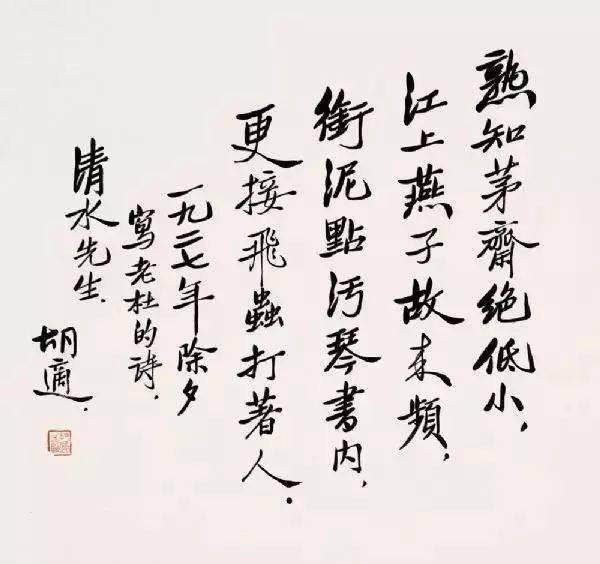 熟知茅齋绝低小，
江上燕子故来頻，
銜泥點汚琴書內，
更接飛蟲打著人．
一九二七年除夕
寫老杜的詩．
清水先生．
胡適．